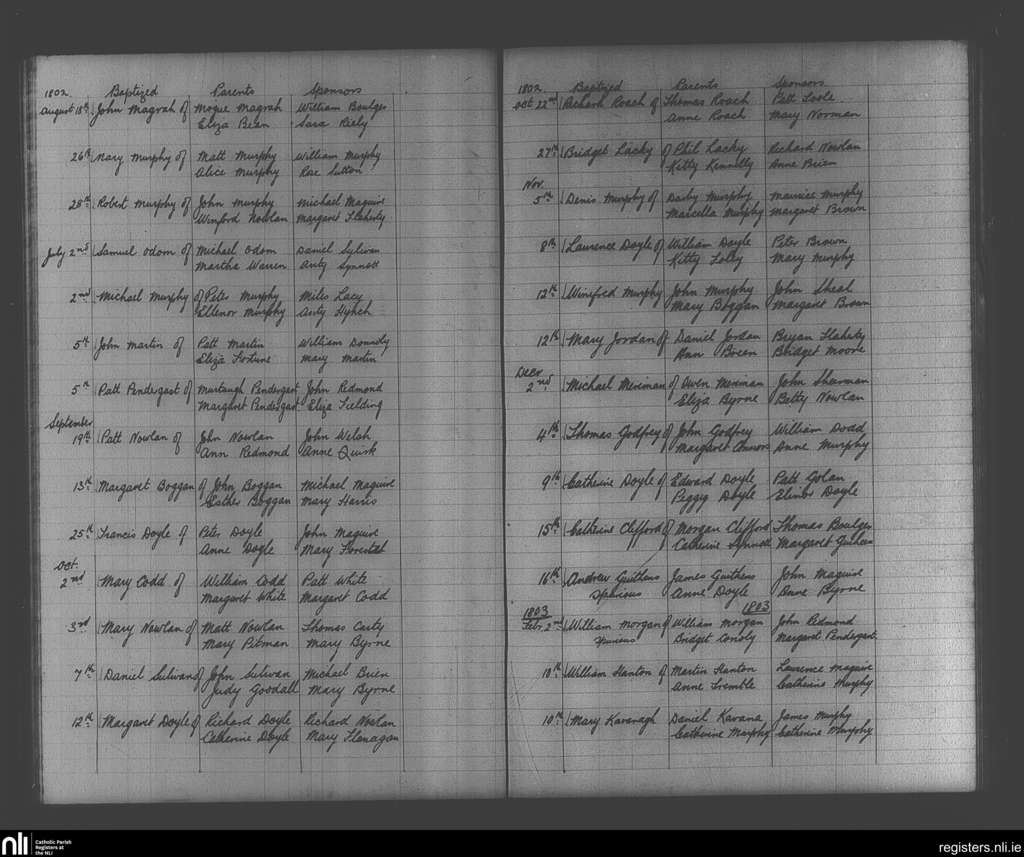 1802. Baptized Parents Sponsors
August 18th John Magrah of Mogue Magrah William Boulger
Eliza Bean Sara Riely
26th Mary Murphy of Matt Murphy William Murphy
Alice Murphy Rose Sutton
28th Robert Murphy of John Murphy Michael Maguire
Winford Nowlan Margaret Flaherty
July 2nd Samuel Odom of Michael Odom Daniel Sylivan
Martha Warren Anty Synnott
2nd Michael Murphy of Peter Murphy Miles Lacy
Ellenor Murphy Anty Hynch
5th John Martin of Patt Martin William Donnoly
Eliza Fortune Mary Martin
5th Patt Pendergast of Murtaugh Pendergast John Redmond
Margaret Pendergast Eliza Fielding
September
19th Patt Nowlan of John Nowlan John Welsh
Ann Redmond Anne Quirk
13th Margaret Boggan of John Boggan Michael Maguire
Esther Boggan Mary Harris
25th Francis Doyle of Peter Doyle John Maguire
Anne Doyle Mary Forestal
Oct.
2nd Mary Codd of William Codd Patt White
Margaret White Margaret Codd
3rd Mary Nowlan of Matt Nowlan Thomas Carty
Mary Pitman Mary Byrne
7th Daniel Sulivan of John Sulivan Michael Brien
Judy Goodall Mary Byrne
12th Margaret Doyle of Richard Doyle Richard Nowlan
Catherine Doyle Mary Flanagan
1802. Baptized Parents Sponsors
Oct 22nd Richard Roach of Thomas Roach Patt Toole
Anne Roach Mary Norman
27th Bridget Lacky of Phil Lacky Richard Nowlan
Kitty Kennelly Anne Brien
Nov.
5th Denis Murphy of Darby Murphy Maurice Murphy
Marcella Murphy Margaret Brown
8th Laurence Doyle of William Doyle Peter Brown
Kitty Foley Mary Murphy
12th Winifred Murphy John Murphy John Sheal
Mary Boggan Margaret Brown
12th Mary Jordan of Daniel Jordan Bryan Flaherty
Ann Brean Bridget Moore
Decr
2nd Michael Meriman of Owen Meriman John Sherman
Eliza Byrne Betty Nowlan
4th Thomas Godfrey of John Godfrey William Dodd
Margaret Connors Anne Murphy
9th Catherine Doyle of Edward Doyle Patt Golan
Peggy Doyle Elinor Doyle
15th Catherine Clifford of Morgan Clifford Thomas Boulger
Catherine Synnott Margaret Guithens
16th Andrew Guithens James Guithens John Maguire
Spurious Anne Doyle Anne Byrne
1803 1803
Febr. 2nd William Morgan of William Morgan John Redmond
Spurious Bridget Conoly Margaret Pendergast
10th William Hanton of Martin Hanton Laurence Maguire
Anne Tremble Catherine Murphy
10th Mary Kavanagh Daniel Kavana James Murphy
Catherine Murphy Catherine Murphy
nli Catholic Parish
Registers at
the NLI
registers.nli.ie